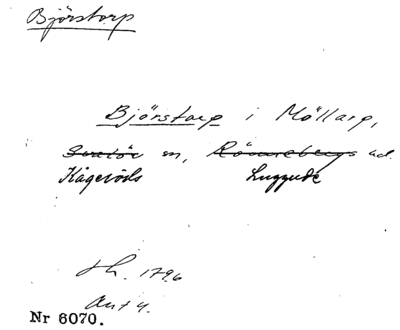 Björstorp
Björstorp i Möllarp,
Svalöv sn, Rönnebergs hd.
Kågeröds Luggude
th. 1796
Ant 4.
Nr 6070.